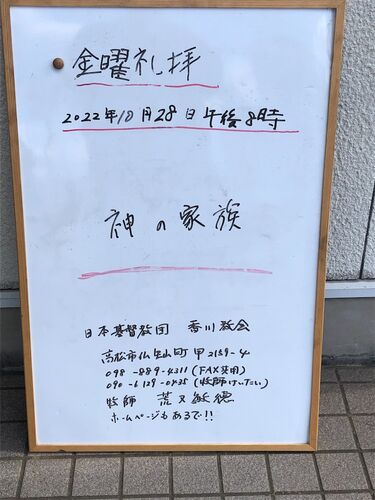 金曜礼拝
2022年10月28日午後8時
神の家族
日本基督教団 香川教会
高松市仏生山町甲2159-4
098-889-4311(FAX共用)
090-6129-0435(牧師けいたい)
牧師 荒又敏徳
ホームページもあるで!!